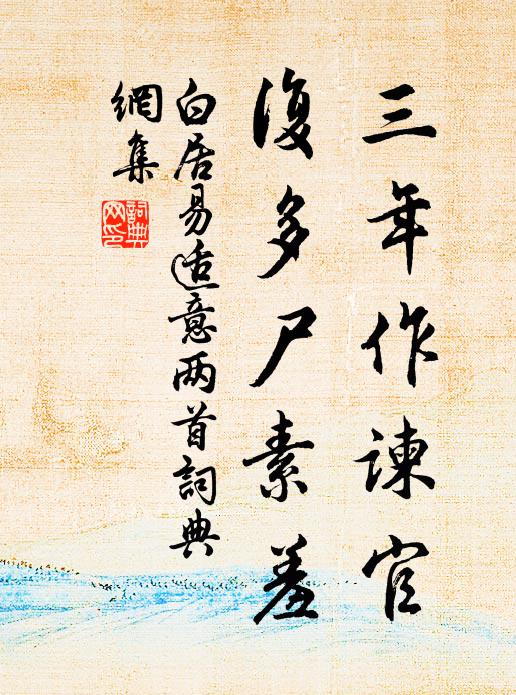 三年作諫官
復多尸素羞
白居易适意两首詞典
網集
詞典
网印